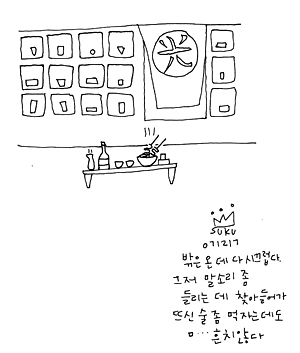 光
SUKU
071217
밖은 온 데 다 시끄럽다.
그저 말소리 좀
들리는 데 찾아들어가
뜨신 술 좀 먹자는데도
ㅁ··· 흔치않다